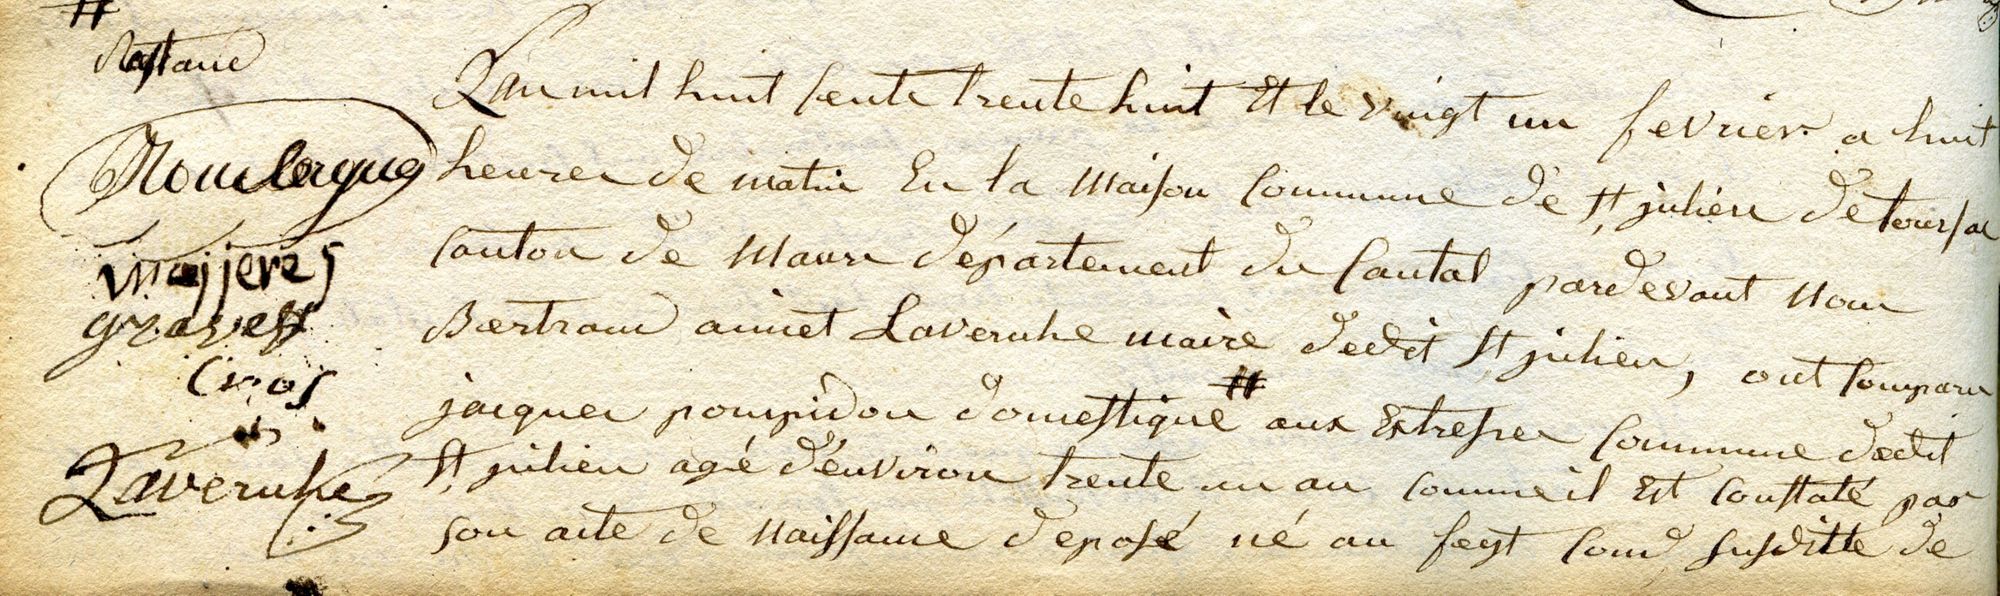 #
Restant
Moulergues
majjeres
gravess
Cros
Laveruhe
L'an mil huit cents trente huit Et le vingt un fevrier a huit
heures de matin En la maison Commune de St julien de toursac
Canton de Maurs département du Cantal pardevant Nous
Bertrand amiet Laveruhe maire dedit St julien, ont Comparu
jacques pompidou domestique # aux Estresses Commune dedit
St julien agé d'environ trente un an comme il Est constaté par
son acte de Naissance deposé né au feyt Comᵉ Susditte de